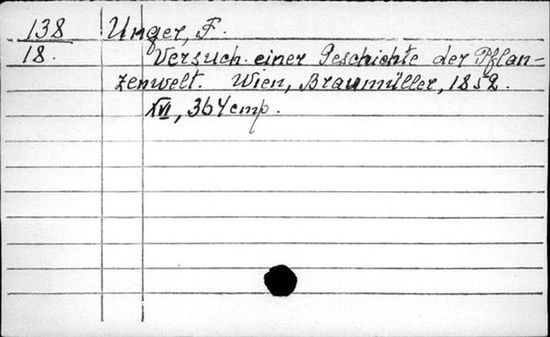 138 Unger, F.
18. Versuch einer Geschichte der Pflan-
zenwelt. Wien, Braumüller, 1852.
XVI, 364 стр.